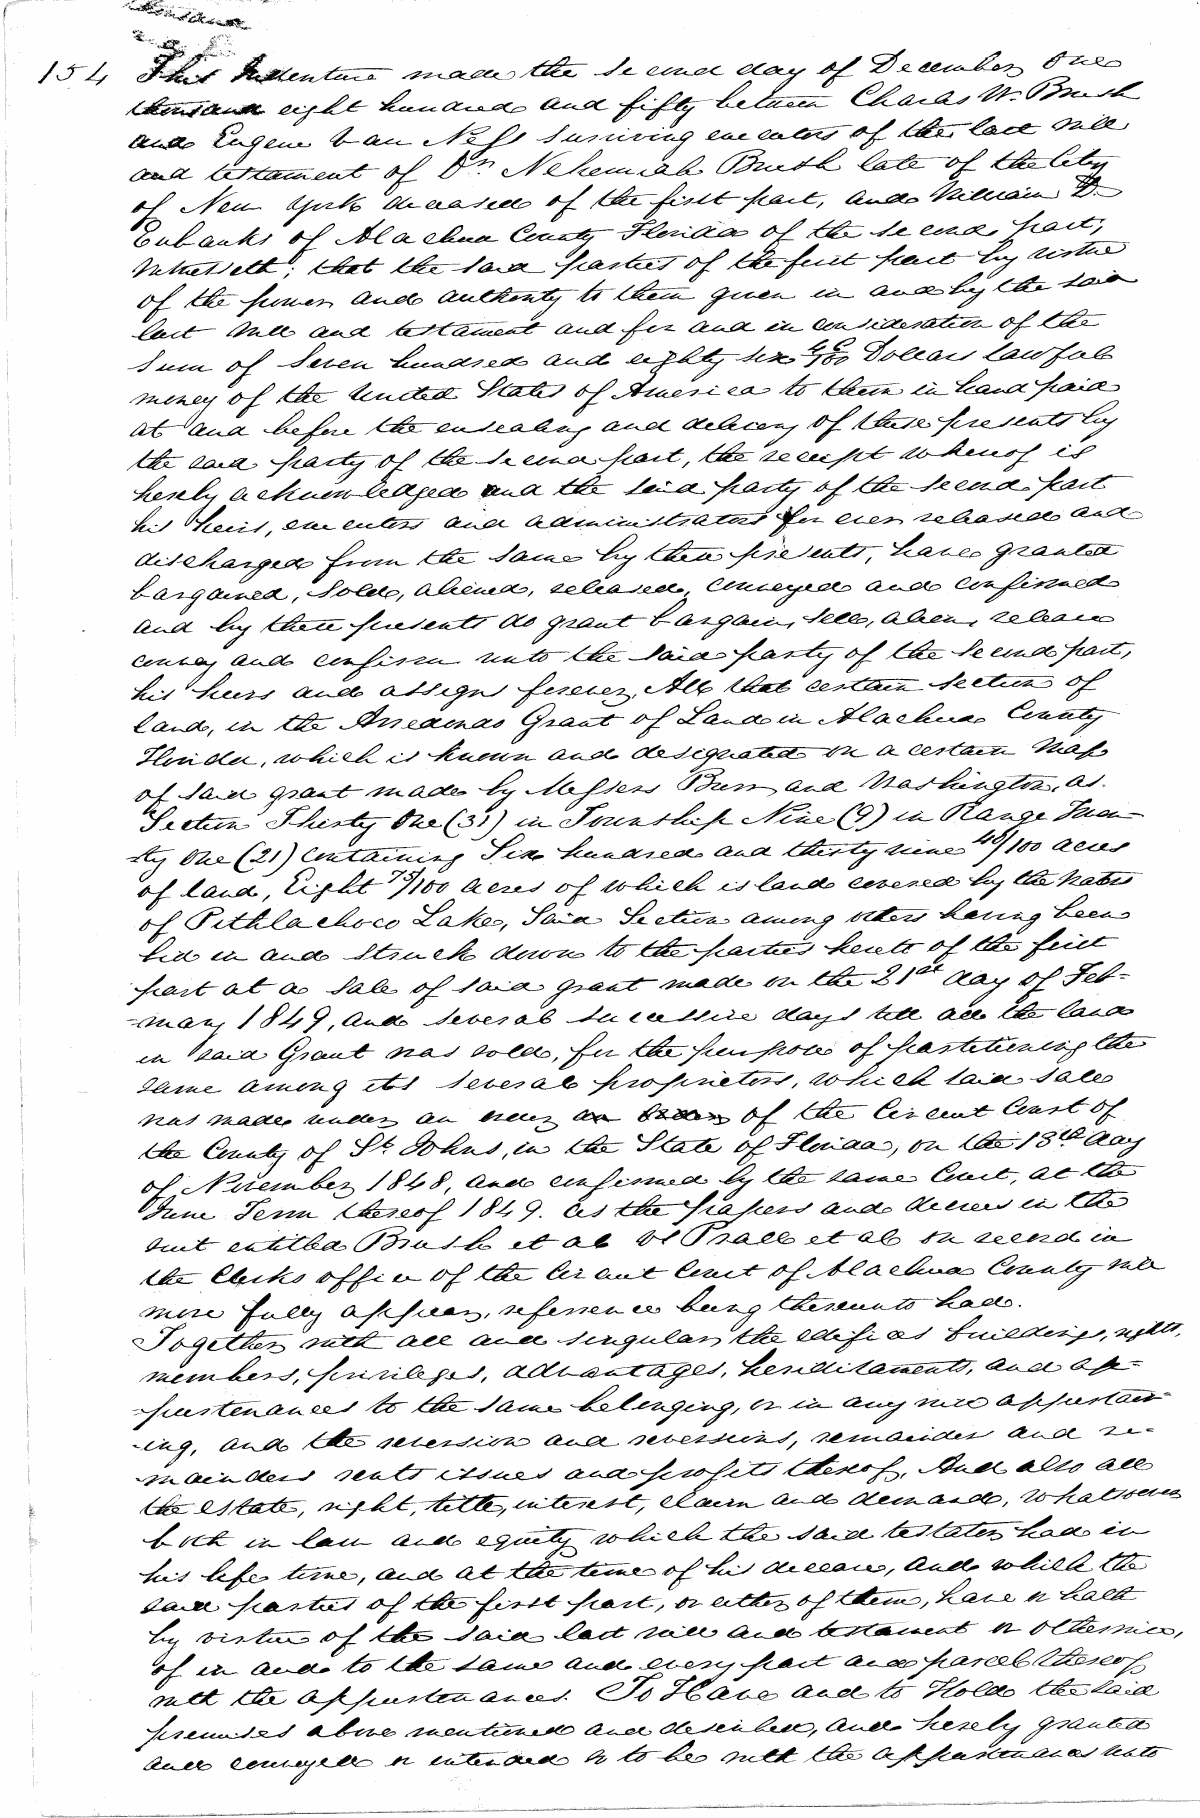 154 This Indenture made the second day of December, One
thousand eight hundred and fifty between Charles W. Brush
and Eugene Van Ness surviving executors of the last will
and testament of Dr. Nehemiah Brush late of the City
of New York deceased of the first part, and William D.
Eubanks of Alachua County Florida of the second part,
Witnesseth; that the said parties of the first part by virtue
of the power and authority to them given in and by the said
last will and testament and for and in consideration of the
sum of Seven hundred and eighty six 46/100 Dollars lawful
money of the United States of America to them in hand paid
at and before the ensealing and delivery of these presents by
the said party of the second part, the receipt whereof is
hereby acknowledged and the said party of the second part
his heirs, executors and administrators for ever released and
discharged from the same by these presents, have granted
bargained, sold, aliened, released, conveyed and confirmed
and by these presents do grant bargain, sell, alien, release
convey and confirm unto the said party of the second part,
his heirs and assigns forever, All that certain Section of
land, in the Arredondo Grant of Land in Alachua County
Florida, which is known and designated on a certain Map
of said grant made by Messers Burr and Washington, as
Section Thirty One (31) in Township Nine (9) in Range Twen-
ty One (21) Containing Six hundred and thirty nine 40/100 acres
of land, Eight 75/100 acres of which is land covered by the water
of Pithlachoco Lake, Said Section among others having been
bid in and struck down to the parties hereto of the first
part at a sale of said grant made on the 21st day of Feb-
ruary 1849, and several successive days till all the land
in said Grant was sold, for the purpose of partitioning the
same among its several proprietors, which said sale
was made under an order of the Circuit Court of
the County of St. Johns, in the State of Florida, on the 13th day
of November 1848, and confirmed by the same Court, at the
June Term thereof 1849. as the papers and decrees in the
suit entitled Brush et al vs Prall et al on record in
the Clerks office of the Circuit Court of Alachua County will
more fully appear, reference being thereunto had.
Together with all and singular, the edifices buildings, rights,
members, privileges, advantages, hereditaments, and ap-
purtenances to the same belonging, or in any wise appertain-
ing, and the reversion and reversions, remainder and re-
mainders rents issues and profits thereof, And also all
the estate, right, title, interest, claim and demand, whatsoever
both in law and equity which the said testator had in
his life time, and at the time of his decease, and which the
said parties of the first part, or either of them, have or hath
by virtue of the said last will and testament or otherwise,
of in and to the same and every part and parcel thereof
with the appurtenances. To Have and to Hold the said
premises above mentioned and described, and hereby granted
and conveyed or intended so to be with the appurtenances unto